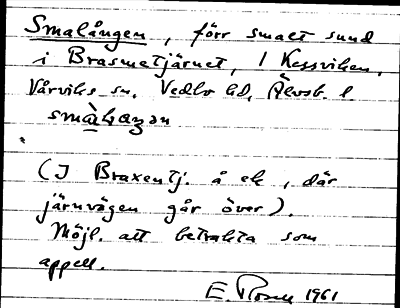 Smalången, förr smalt sund
i Brasmetjärnet, 1 Kessviken,
Vårviks sn, Vedbo hd, Älvsb. l
(I Braxentj. å ek, där
järnvägen går över).
Möjl. att betrakta som
appell.
E. Rosell 1961